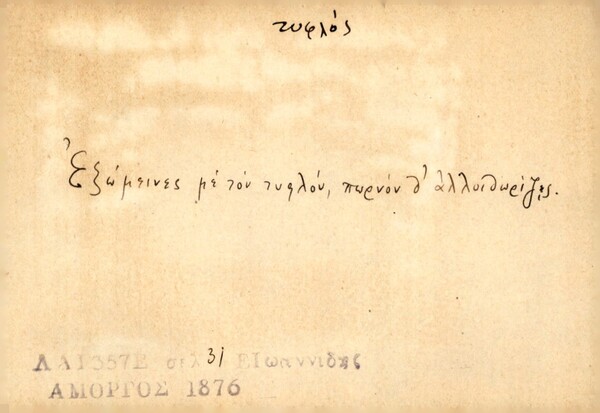 τυφλός
Ἐξώμεινες μέ τόν τυφλόν, πωρνόν θ' ἀλλοιθωρίζῃς.
ΛΑ 1357Ε σελ 31 ΕΙωαννιδης
ΑΜΟΡΓΟΣ 1876